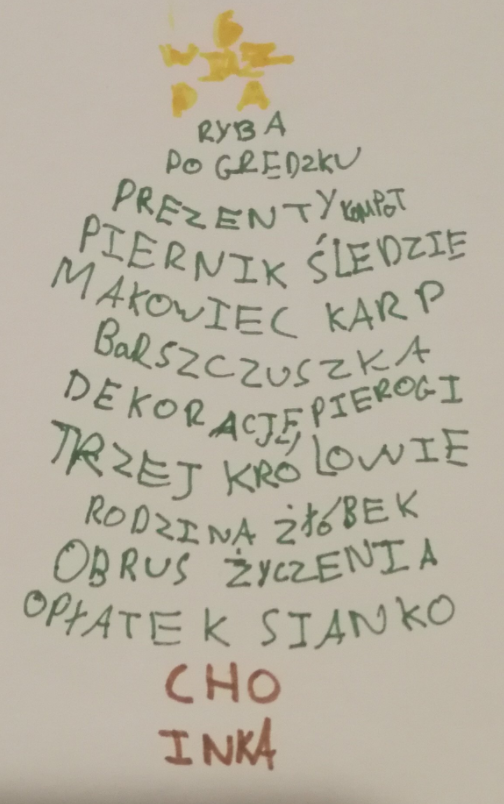 G
WIAZ
DA
RYBA
PO GREDZKU
PREZENTY KOMPOT
PIERNIK ŚLEDZIE
MAKOWIEC KARP
BaRSZCZUSZKA
DEKORACJE, PIEROGI
TRZEJ KROLOWIE
RODZINA ŻŁÓBEK
OBRUS ŻYCZENIA
OPŁATEK SIANKO
CHO
INKA